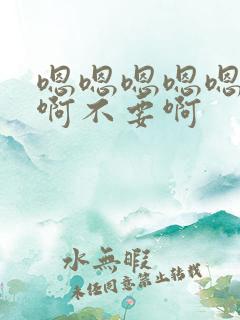 嗯嗯嗯嗯嗯
啊不要啊
水無暇
未经同意禁止转载